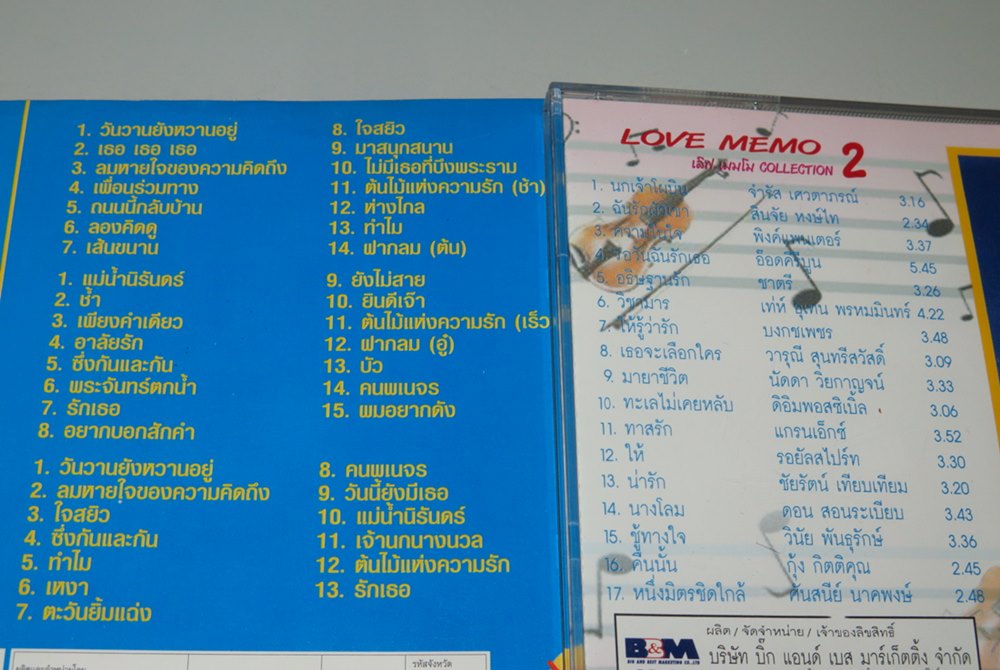 1. วันวานยังหวานอยู่
2. เธอ เธอ เธอ
3. ลมหายใจของความคิดถึง
4. เพื่อนร่วมทาง
5. ถนนนี้กลับบ้าน
6. ลองคิดดู
7. เส้นขนาน
8. ใจสยิว
9. มาสนุกสนาน
10. ไม่มีเธอที่บึงพระราม
11. ต้นไม้แห่งความรัก (ช้า)
12. ห่างไกล
13. ทำไม
14. ฟากลม (ต้น)
1. แม่น้ำนิรันดร์
2. ช้ำ
3. เพียงคำเดียว
4. อาลัยรัก
5. ซึ่งกันและกัน
6. พระจันทร์ตกน้ำ
7. รักเธอ
8. อยากบอกสักคำ
9. ยังไม่สาย
10. ยินดีเจ๊า
11. ต้นไม้แห่งความรัก (เร็ว
12. ฟากลม (อู้)
13. บัว
14. คนพเนจร
15. ผมอยากดัง
1. วันวานยังหวานอยู่
2. ลมหายใจของความคิดถึง
3. ใจสยิว
4. ซึ่งกันและกัน
5. ทำไม
6. เหงา
7. ตะวันยิ้มแฉ่ง
8. คนพเนจร
9. วันนี้ยังมีเธอ
10. แม่น้ำนิรันดร์
11. เจ้านกนางนวล
12. ต้นไม้แห่งความรัก
13. รักเธอ
รหัสจังหวัด
LOVE MEMO 2
เลิฟ เมมโม COLLECTION
1. นกเจ้าโผบิน จำรัส เศวตาภรณ์ 3.16
2. ฉันรักผัวเขา สินจัย หงษ์ไท 2.34
3. ความในใจ พิงค์แพนเตอร์ 3.37
4. รอวันฉันรักเธอ อ๊อดคีรีบูน 5.45
5. อธิษฐานรัก ชาตรี 3.26
6. วิชามาร เท่ห์ อุเทน พรหมมินทร์ 4.22
7. ให้รู้ว่ารัก บงกชเพชร 3.48
8. เธอจะเลือกใคร วารุณี สุนทรีสวัสดิ์ 3.09
9. มายาชีวิต นัดดา วิยกาญจน์ 3.33
10. ทะเลไม่เคยหลับ ดิอิมพอสซิเบิ้ล 3.06
11. ทาสรัก แกรนเอ็กซ์ 3.52
12. ให้ รอยัลสไปร์ท 3.30
13. น่ารัก ชัยรัตน์ เทียบเทียม 3.20
14. นางโลม ดอน สอนระเบียบ 3.43
15. ชู้ทางใจ วินัย พันธุรักษ์ 3.36
16. คืนนั้น กุ้ง กิตติคุณ 2.45
17. หนึ่งมิตรชิดใกล้ ศันสนีย์ นาคพงษ์ 2.48
B&M
BIG AND BEST MARKETING CO.,LTD.
ผลิต / จัดจำหน่าย / เจ้าของลิขสิทธิ์
บริษัท บิ๊ก แอนด์ เบส มาร์เก็ตติ้ง จำกัด